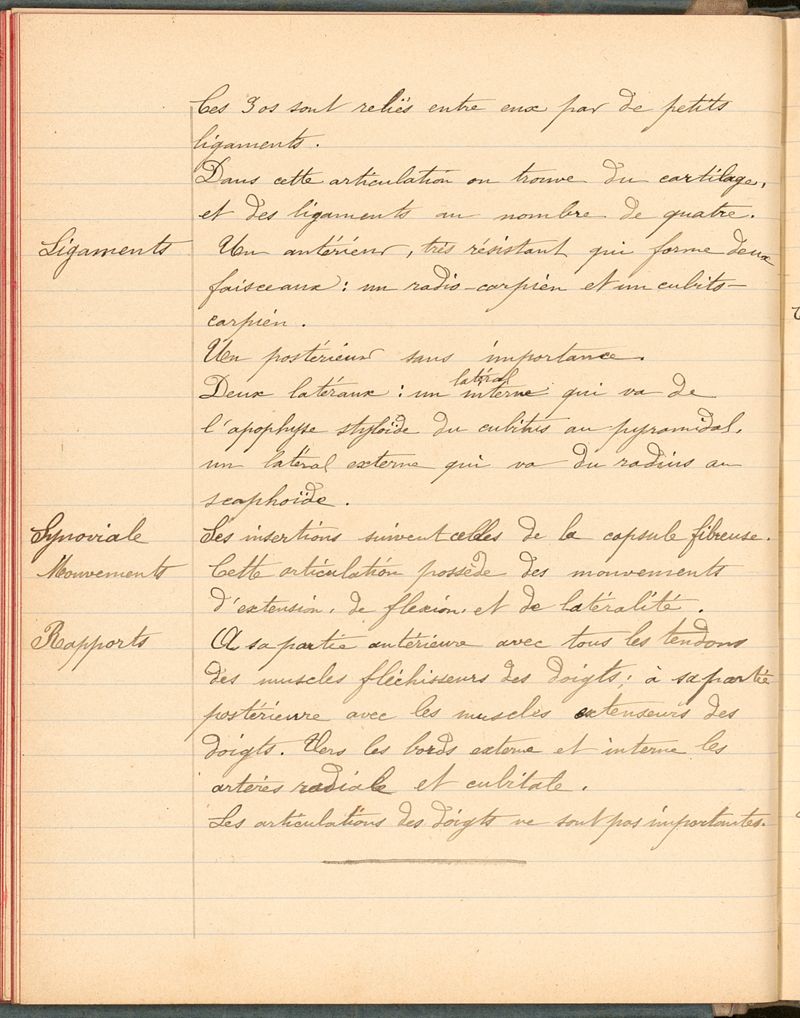 Ces 3 os sont reliés entre eux par de petits
ligaments.
Dans cette articulation on trouve du cartilage,
et des ligaments au nombre de quatre.
Ligaments Un antérieur, très résistant qui forme deux
faisceaux : un radio-carpien et un cubito-
carpien.
Un postérieur sans importance.
latéral
Deux latéraux : un interne qui va de
l'apophyse styloïde du cubitus au pyramidal,
un latéral externe qui va du radius au
scaphoïde.
Synoviale Ses insertions suivent celles de la capsule fibreuse.
Mouvements Cette articulation possède des mouvements
d'extension, de flexion, et de latéralité.
Rapports A sa partie antérieure avec tous les tendons
des muscles fléchisseurs des doigts; à sa partie
postérieure avec les muscles extenseurs des
doigts. Vers les bords externe et interne les
artères radiale et cubitale.
Les articulations des doigts ne sont pas importantes.